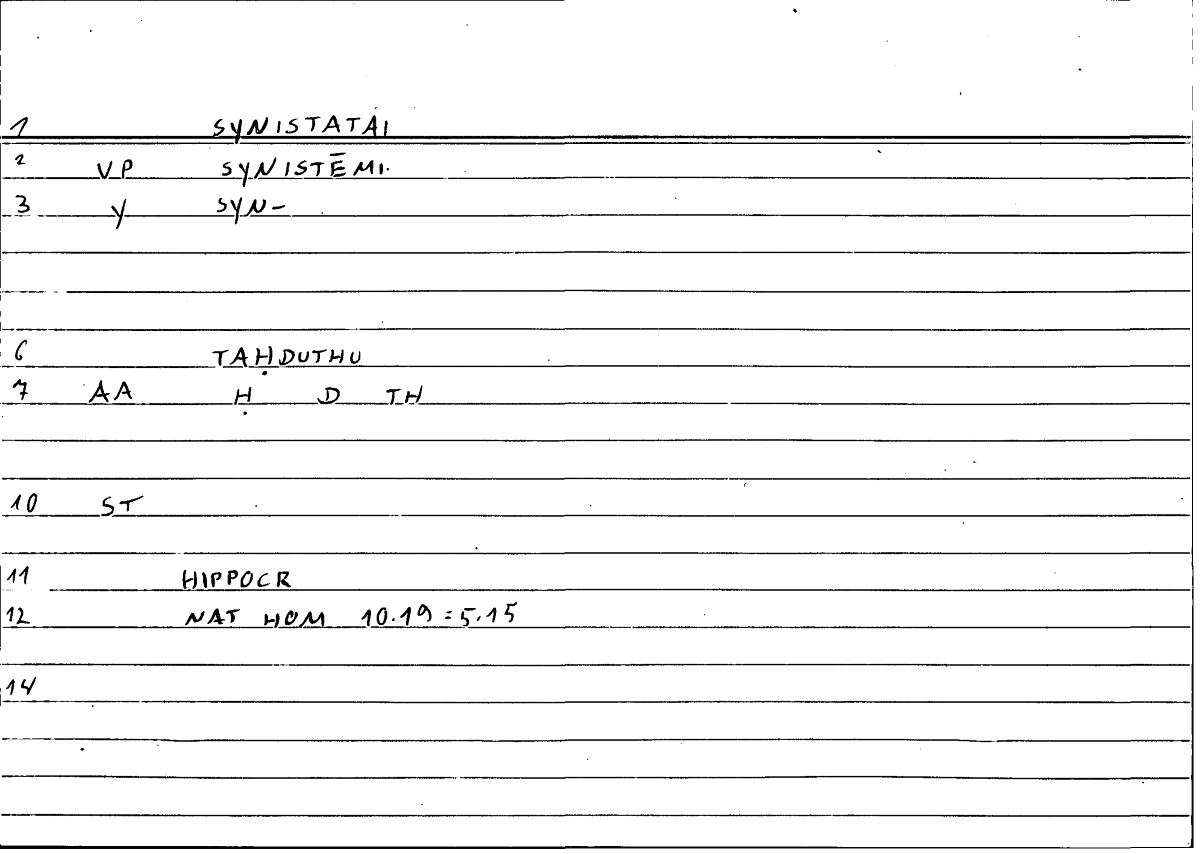 1 SYNISTATAI
2 VP SYNISTĒMI.
3 Y SYN-
6 TAḤDUTHU
7 AA Ḥ D TH
10 ST
11 HIPPOCR
12 NAT HOM 10.19=5.15
14